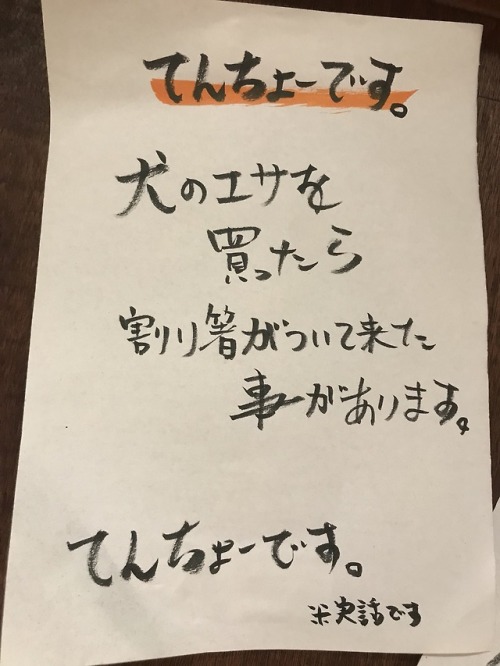 てんちょーです。
犬のエサを
買ったら
割り箸がついて来た
事があります。
てんちょーです。
※実話です